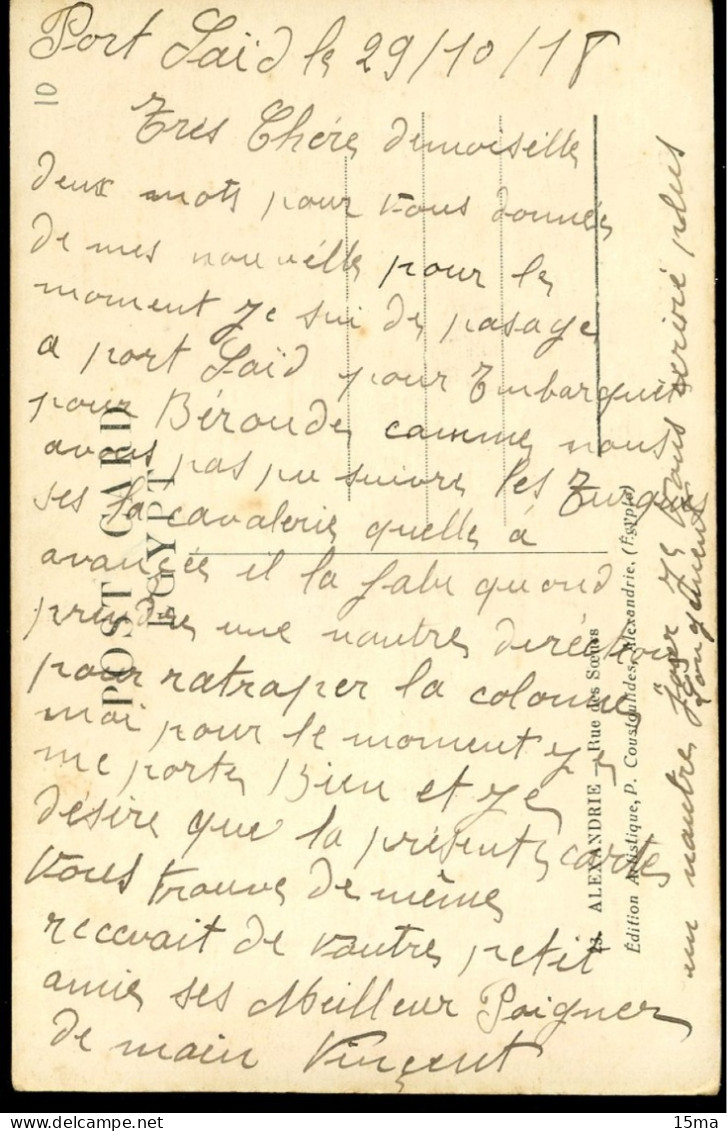 Port Saïd le 29/10/18
10
Tres Chére demoiselle
deux mots pour vous donnée
de mes nouvélle pour le
moment Je sui de pasage
a port Saïd pour Embarquér
pour Béroude comme nous
avons pas pu suivre les Turques
ses la cavalerie quelle á
avancée il la falu quond
prendre une nautre diréction
pour ratraper la colonne
moi pour le moment Je
me porte Bien et Je
désire que la présente carte
vous trouve de même
recevait de vautre petit
amie ses Meilleur Poigner
de main Vinçent
un nautre jour Je vous ecrire plus
longuement
POST CARD
EGYPT
13. ALEXANDRIE — Rue des Sœurs
Édition Artistique, P. Coustoulides, Alexandrie, (Égypte)
15ma